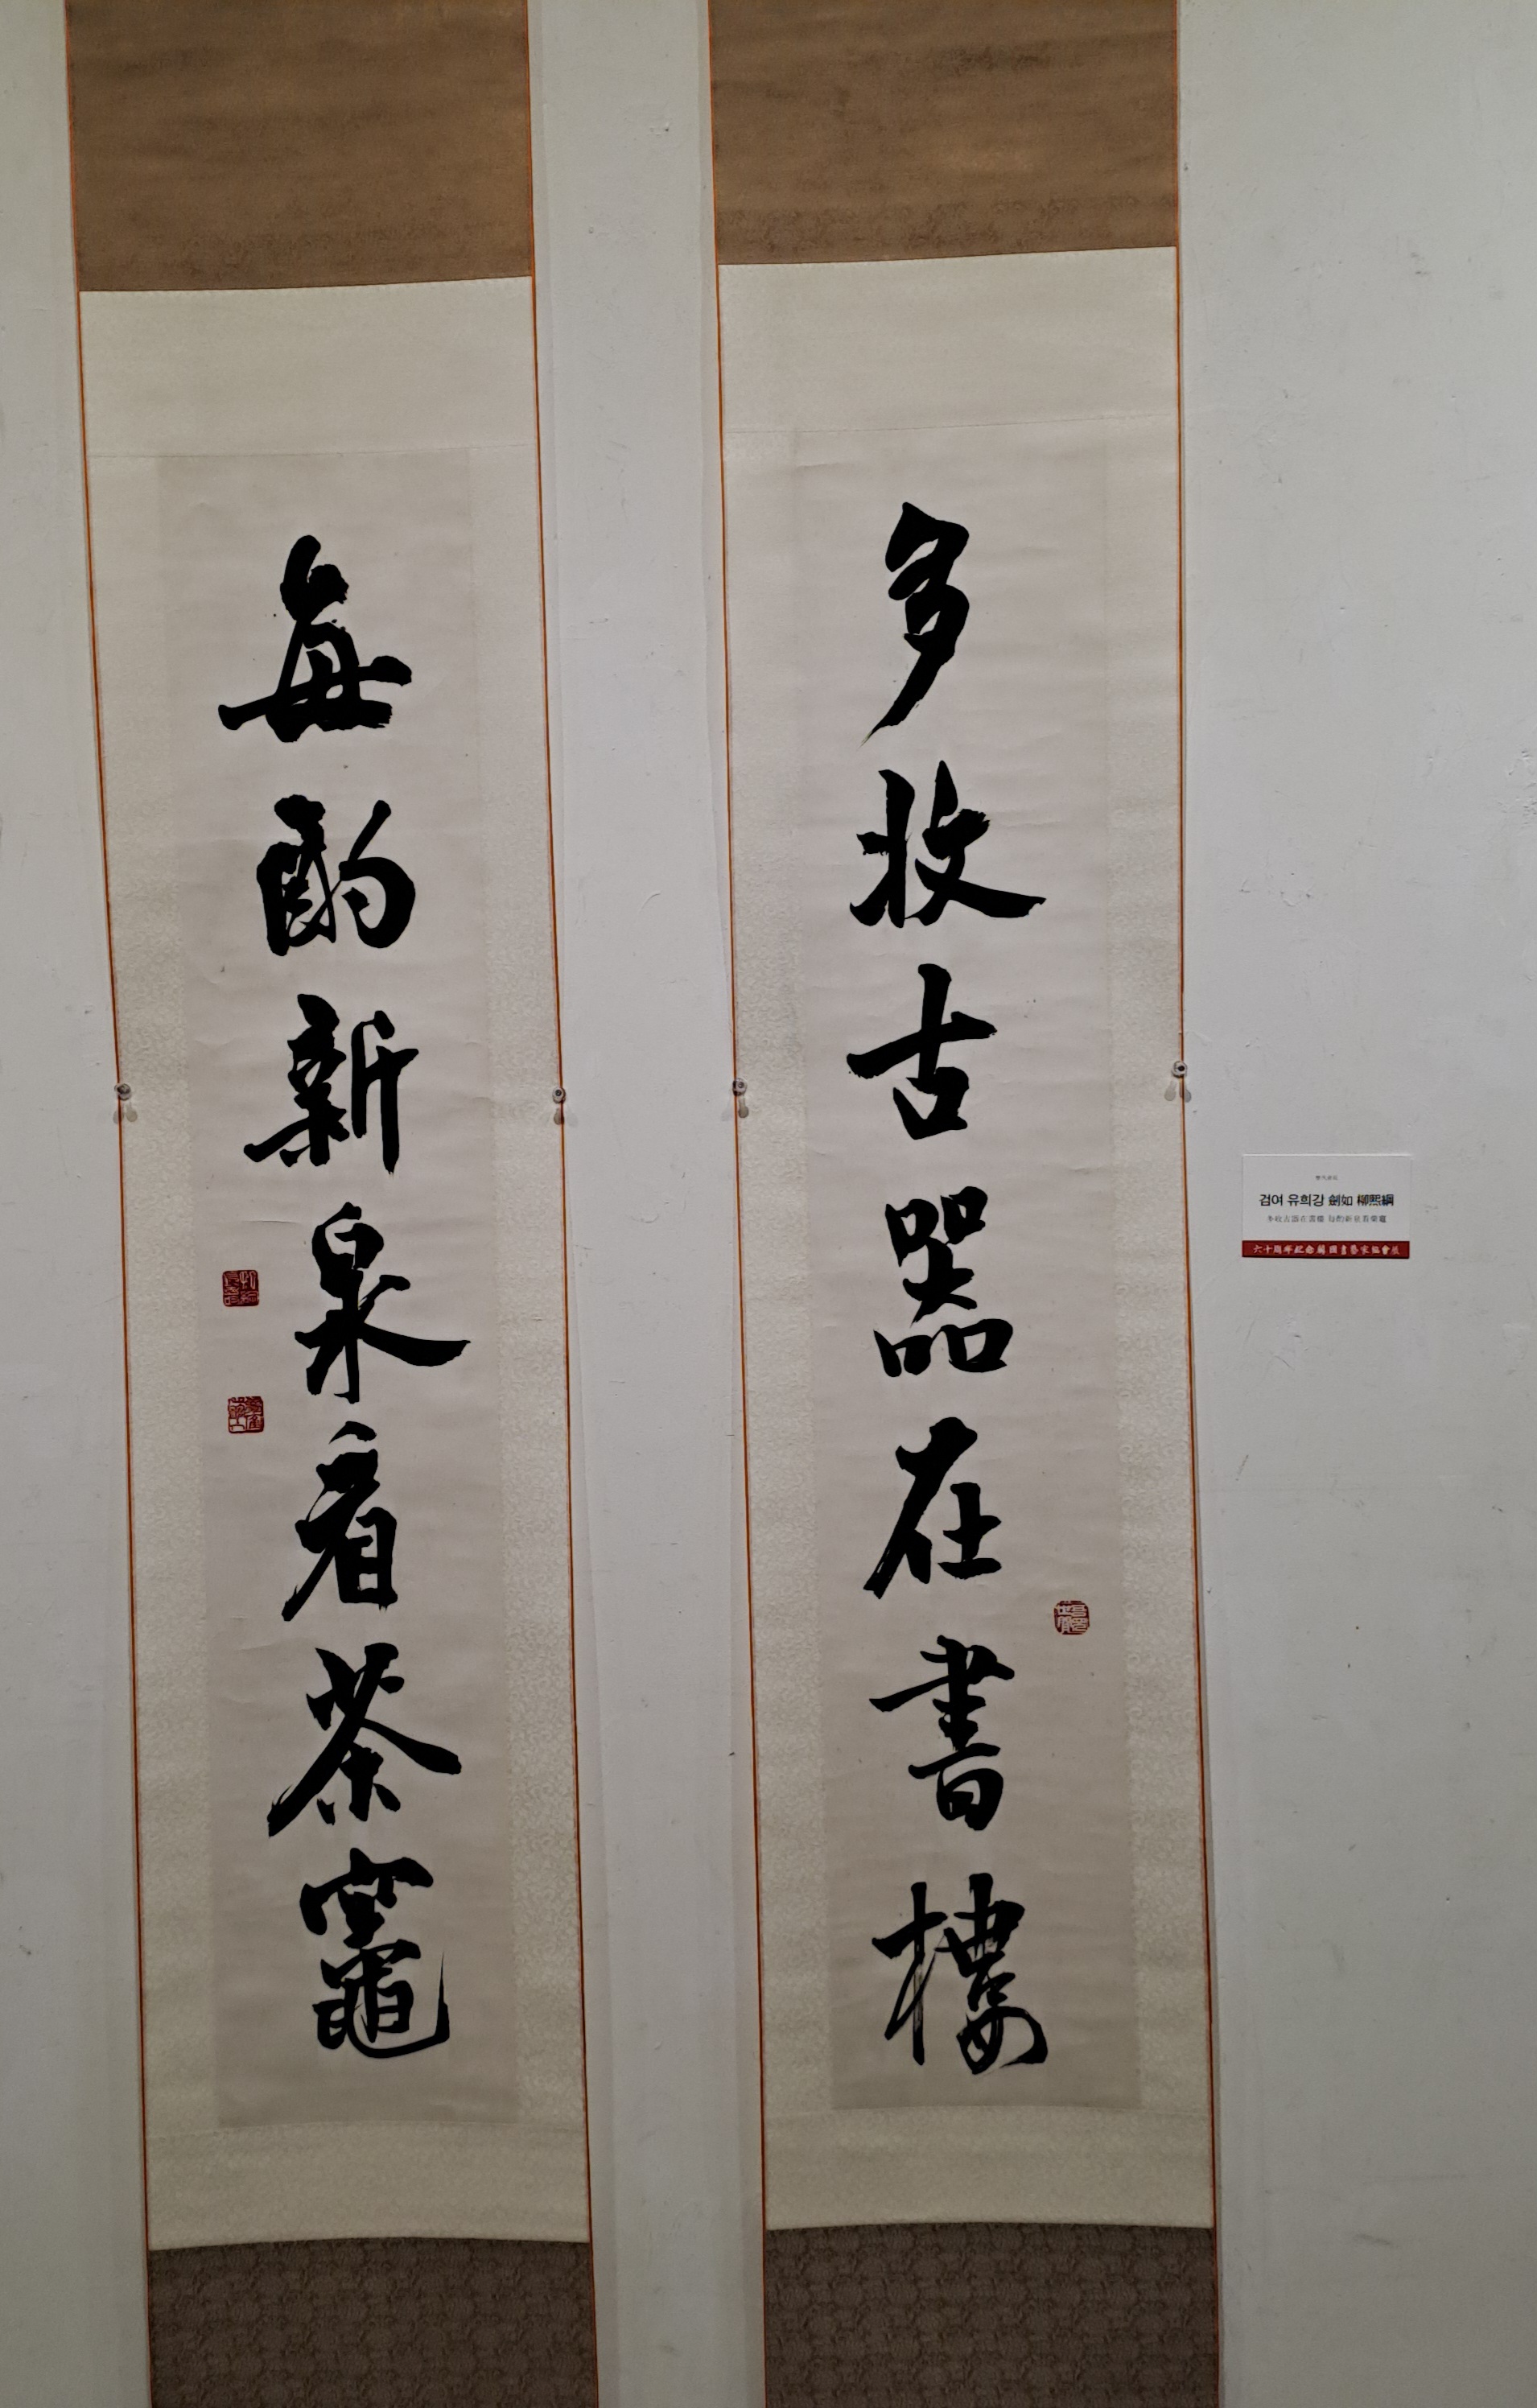 多收古器在書樓
每酌新泉看茶竈
검여 유희강 劍如 柳熙綱
多收古器在書樓 每酌新泉看茶竈
六十周年紀念韓國書藝家協會展